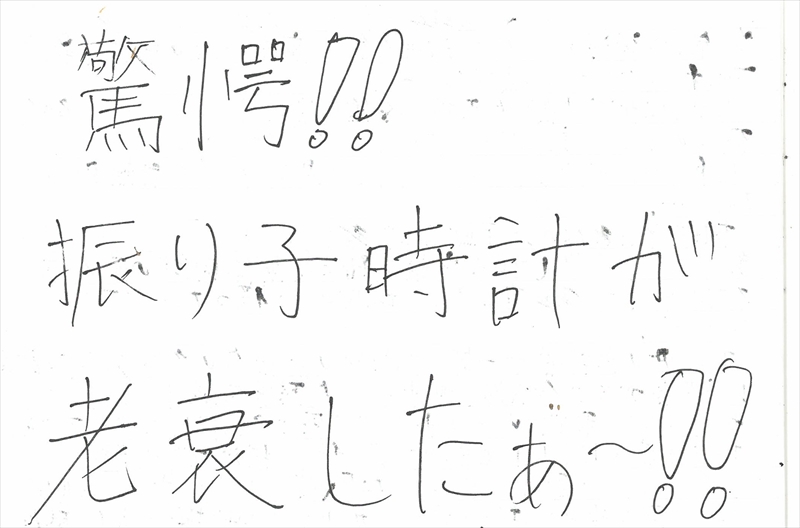 驚愕!!
振り子時計が
老衰したぁ〜!!